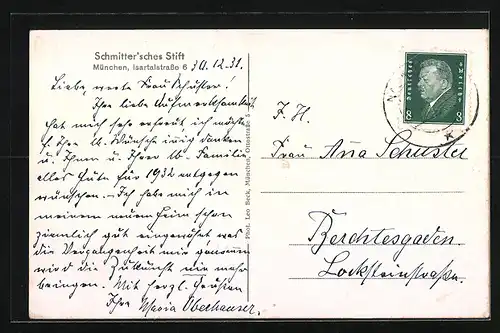 Schmitter'sches Stift
München, Isartalstraße 6 30.12.31.
Liebe, werte Frau Schuster!
Ihre liebe Aufmerksamkeit
hat mich sehr erfreut ich möchte
f. Ihre lb. Wünsche innig danken
u. Ihnen u. Ihrer lb. Familie
alles Gute für 1932 entgegen
wünschen. – Ich habe mich in
meinem neuen Heim schon
ziemlich gut eingewöhnt was
die Vergangenheit mir genommen
wird die Zukunft nie mehr
bringen. Mit herzl. Grüßen
Ihre Maria Oberhauser.
Phot. Leo Beck, München, Ottostraße 5
Deutsches Reich
8 8
F. H.
Frau Anna Schuster
Berchtesgaden.
Locksteinstraße.